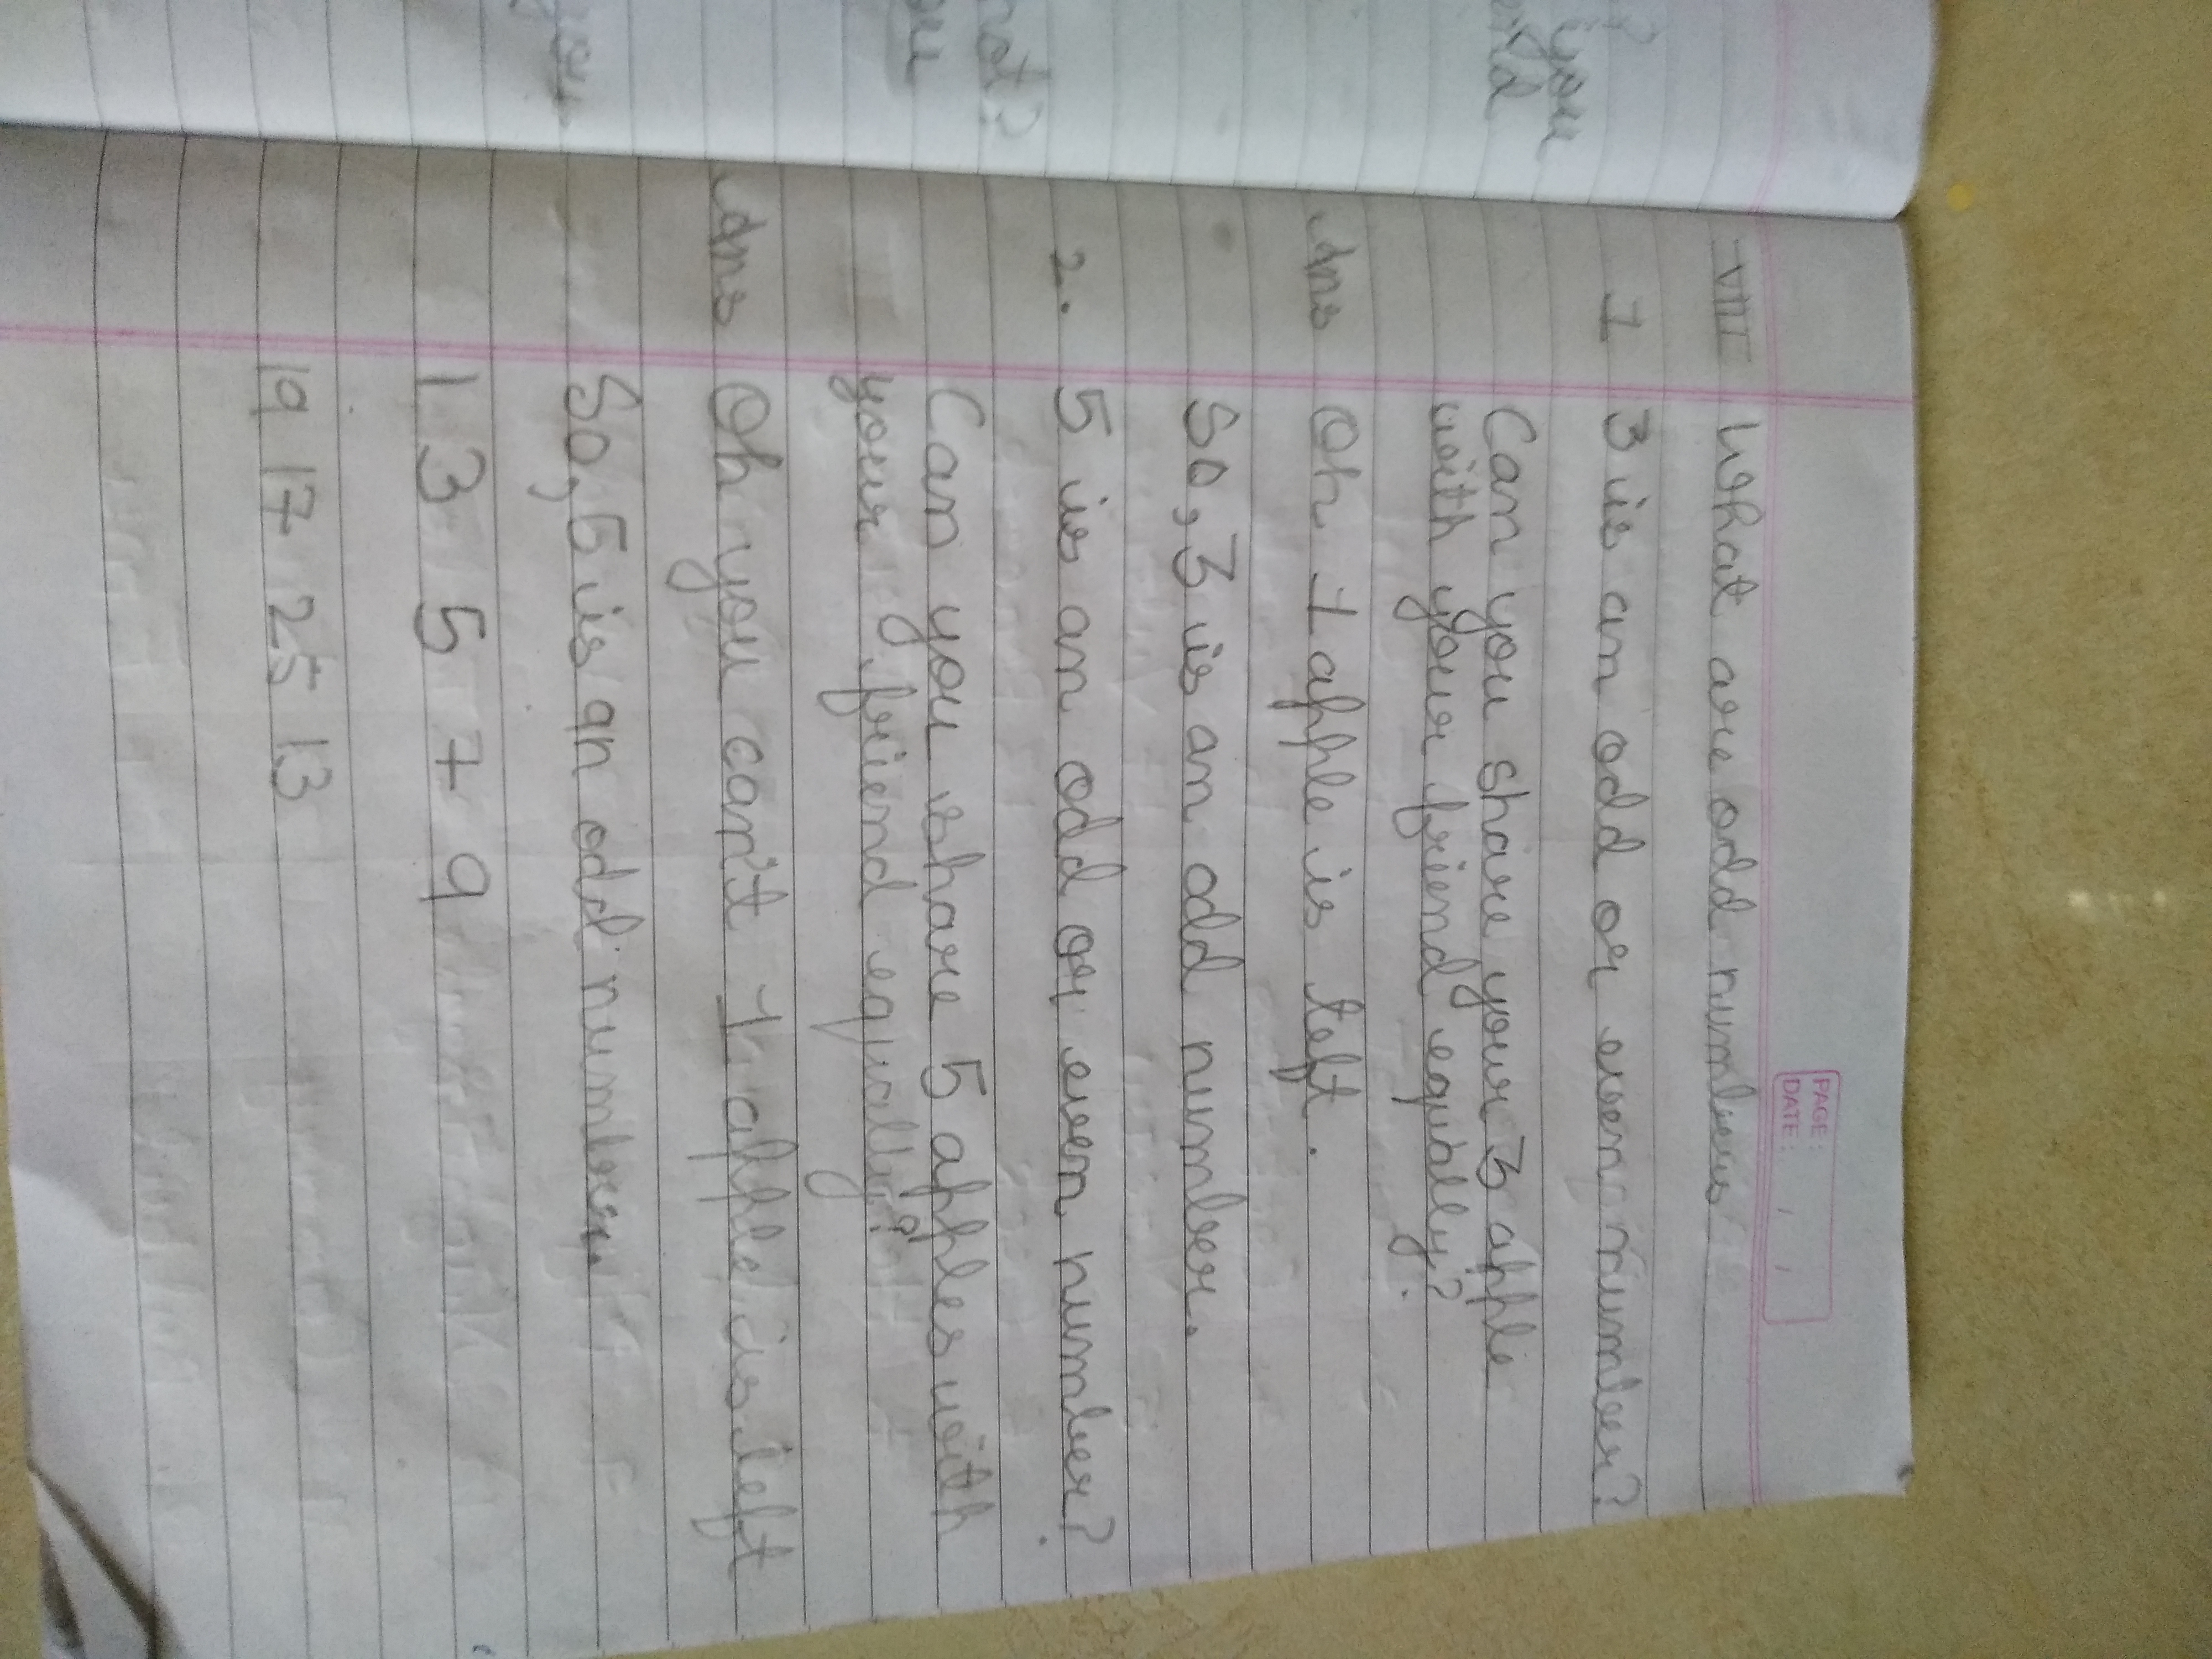 PAGE:
DATE: / /
VIII What are odd numbers
1 3 is an odd or even number?
Can you share your 3 apple
with your friend equally?
Ans Oh 1 apple is left.
So, 3 is an odd number.
2. 5 is an odd or even number?
Can you share 5 apples with
your friend equally?
Ans Oh you can't 1 apple is left
So, 5 is an odd number.
1 3 5 7 9
19 17 25 13
you
nd?